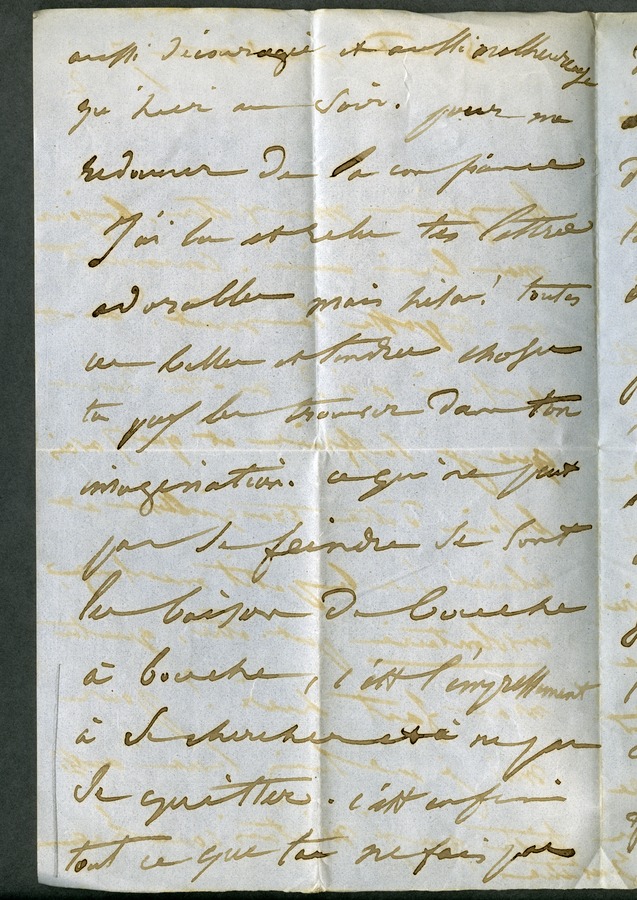 aussi découragée et aussi malheureuse
qu'hier au soir. pour me
redonner de la confiance
J'ai lu et relu tes lettres
adorables mais hélas! toutes
ces belles et tendres choses
tu peux les trouver dans ton
imagination. ce qui ne peut
pas se feindre ce sont
les baisers de bouche
à bouche, c'est l'empressement
à se chercher et à ne pas
se quitter. c'est enfin
tout ce que tu ne fais pas